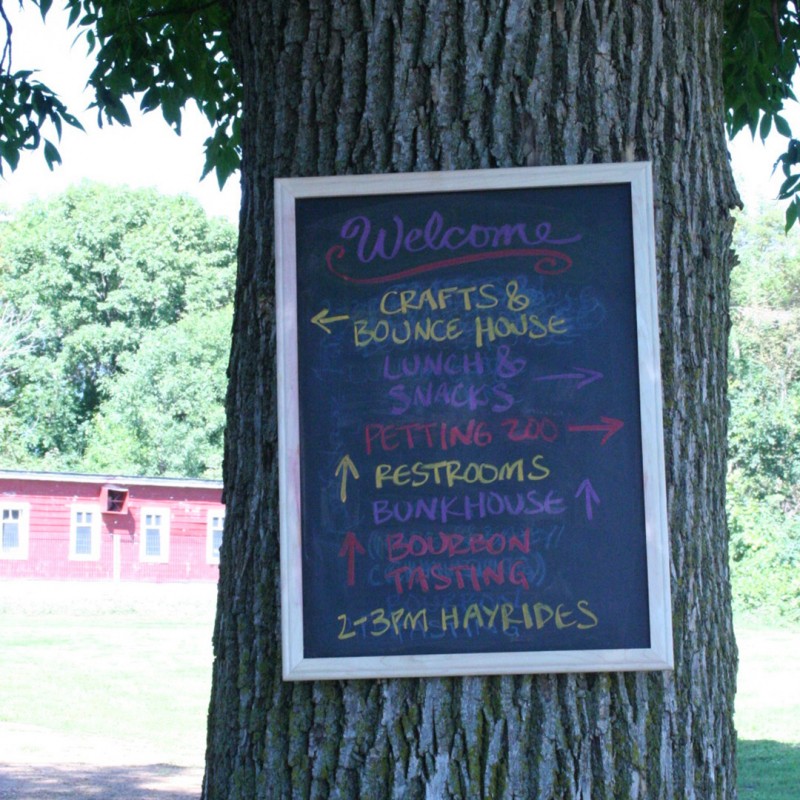 Welcome
CRAFTS &
← BOUNCE HOUSE
LUNCH & →
SNACKS
PETTING ZOO →
↑ RESTROOMS
BUNKHOUSE ↑
↑ BOURBON
TASTING
2-3PM HAYRIDES